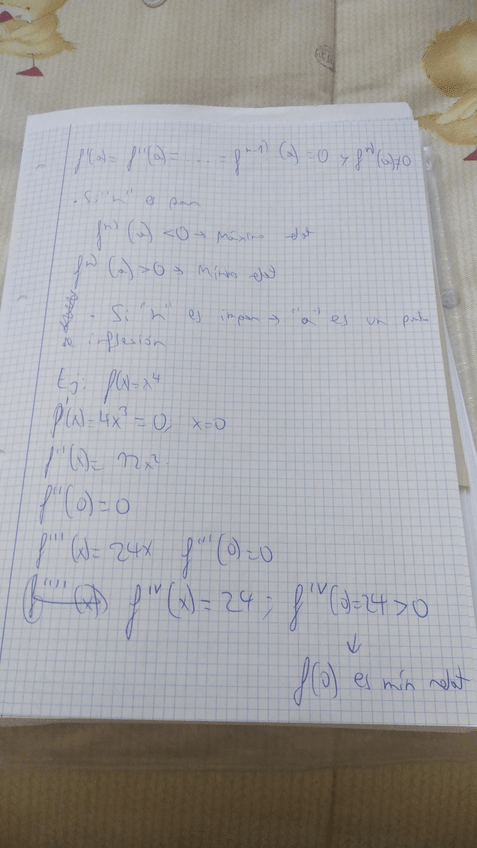 f'(a)= f''(a)= ..... = fⁿ⁻¹⁾ (a) =0 y fⁿ⁾(a)≠0
· Si "n" es par
fⁿ⁾ (a) <0 → máximo relat
fⁿ⁾ (a) >0 → mínimo relat
· Si "n" es impar → "a" es un punto
de inflexión
Ej: f(x)=x⁴
f'(x)=4x³=0; x=0
f''(x)= 12x²
f''(0)=0
f'''(x)=24x f'''(0)=0
fᴵⱽ(x)=24; fᴵⱽ(0)=24>0
↓
f(0) es mín relat